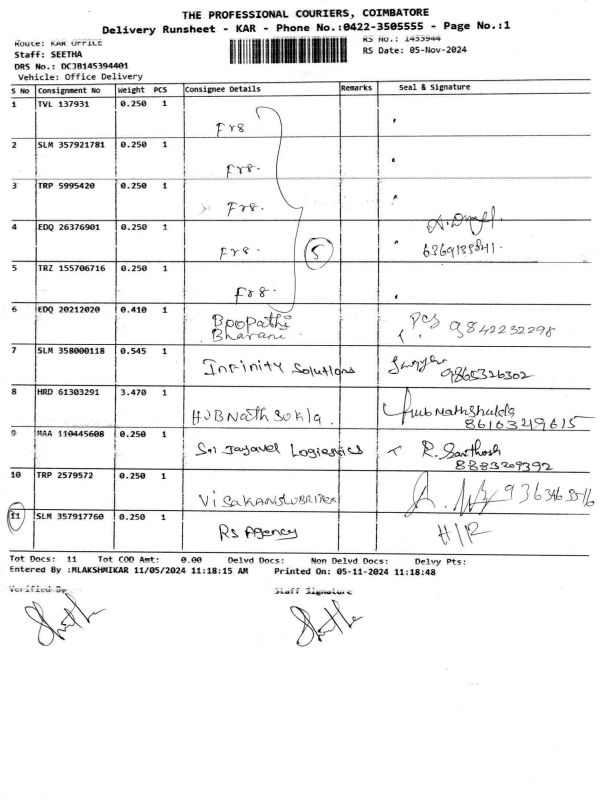 THE PROFESSIONAL COURIERS, COIMBATORE
Delivery Runsheet - KAR - Phone No.:0422-3505555 - Page No.:1
Route: KAR OFFICE RS No.: 1453944
Staff: SEETHA RS Date: 05-Nov-2024
DRS No.: DCJB145394401
Vehicle: Office Delivery
S No Consignment No Weight PCS Consignee Details Remarks Seal & Signature
1 TVL 137931 0.250 1
Fr8
2 SLM 357921781 0.250 1
Fr8.
3 TRP 5995420 0.250 1
Fr8.
4 EDQ 26376901 0.250 1
Fr8. 5
5 TRZ 155706716 0.250 1
Fr8.
6 EDQ 20212020 0.410 1
Boopathi PCS 9842232298
Bharani
7 SLM 358000118 0.545 1
Infinity Solutions 9865326302
8 HRD 61303291 3.470 1
86163249615
9 MAA 110445608 0.250 1
Sri Jayavel Logistics R. Santhosh
8883209392
10 TRP 2579572 0.250 1
11 SLM 357917760 0.250 1
RS Agency H/R
Tot Docs: 11 Tot COD Amt: 0.00 Delvd Docs: Non Delvd Docs: Delvy Pts:
Entered By :MLAKSHMIKAR 11/05/2024 11:18:15 AM Printed On: 05-11-2024 11:18:48
Verified By Staff Signature